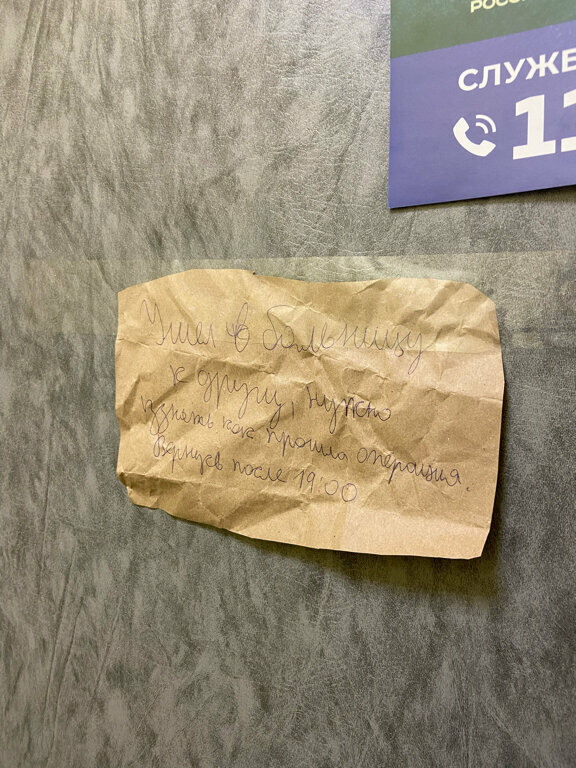 РОСС
СЛУЖЕ
11
Ушел в больницу
к другу, нужно
узнать как прошла операция.
Вернусь после 19:00